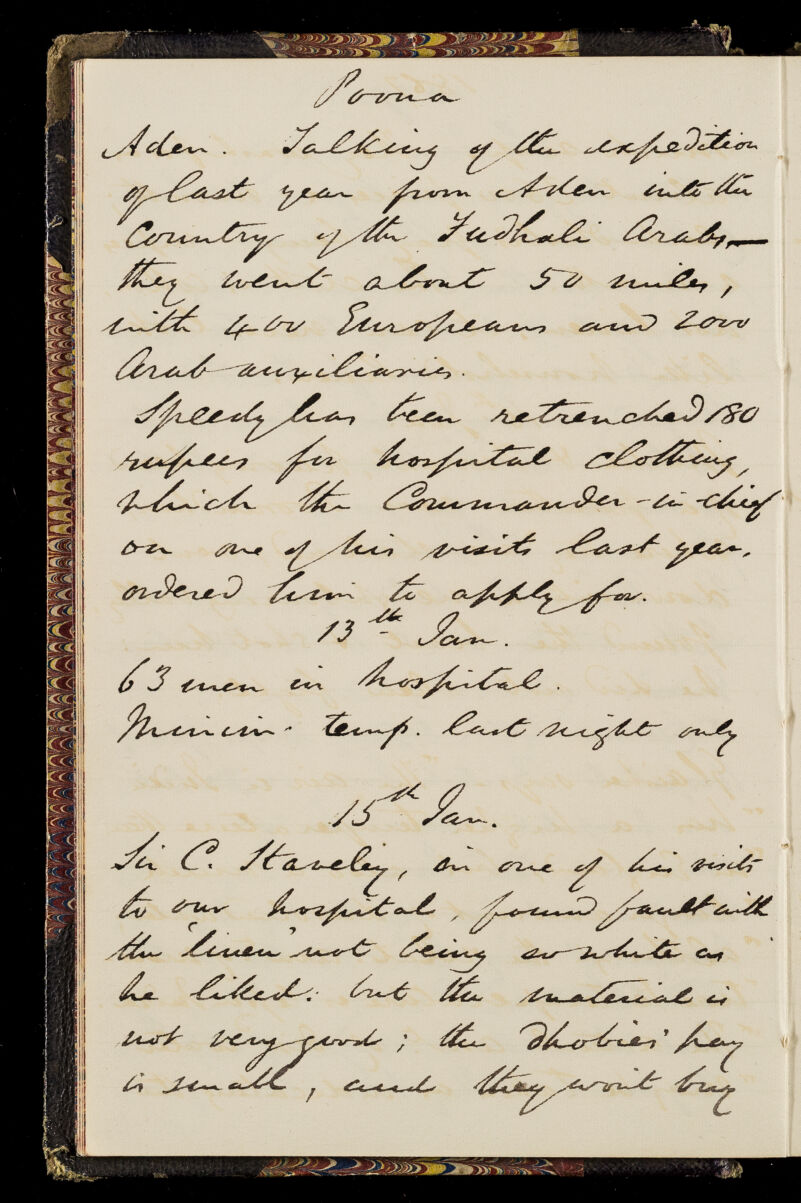 Poona
Aden. Talking of the expedition
of last year from Aden into the
Country of the Fudhali Arabs,—
they went about 50 miles,
with 400 Europeans and 2000
Arab auxiliaries.
Speedy has been retrenched 180
rupees for hospital clothing,
which the Commander-in-chief
on one of his visits last year,
ordered him to apply for.
13th Jan.
63 men in hospital.
Minim. temp. last night only
15th Jan.
Sir C. Staveley, on one of his visits
to our hospital, found fault with
the 'linen' not being so white as
he liked: but the material is
not very good; the dhobies' pay
is small, and they won't buy